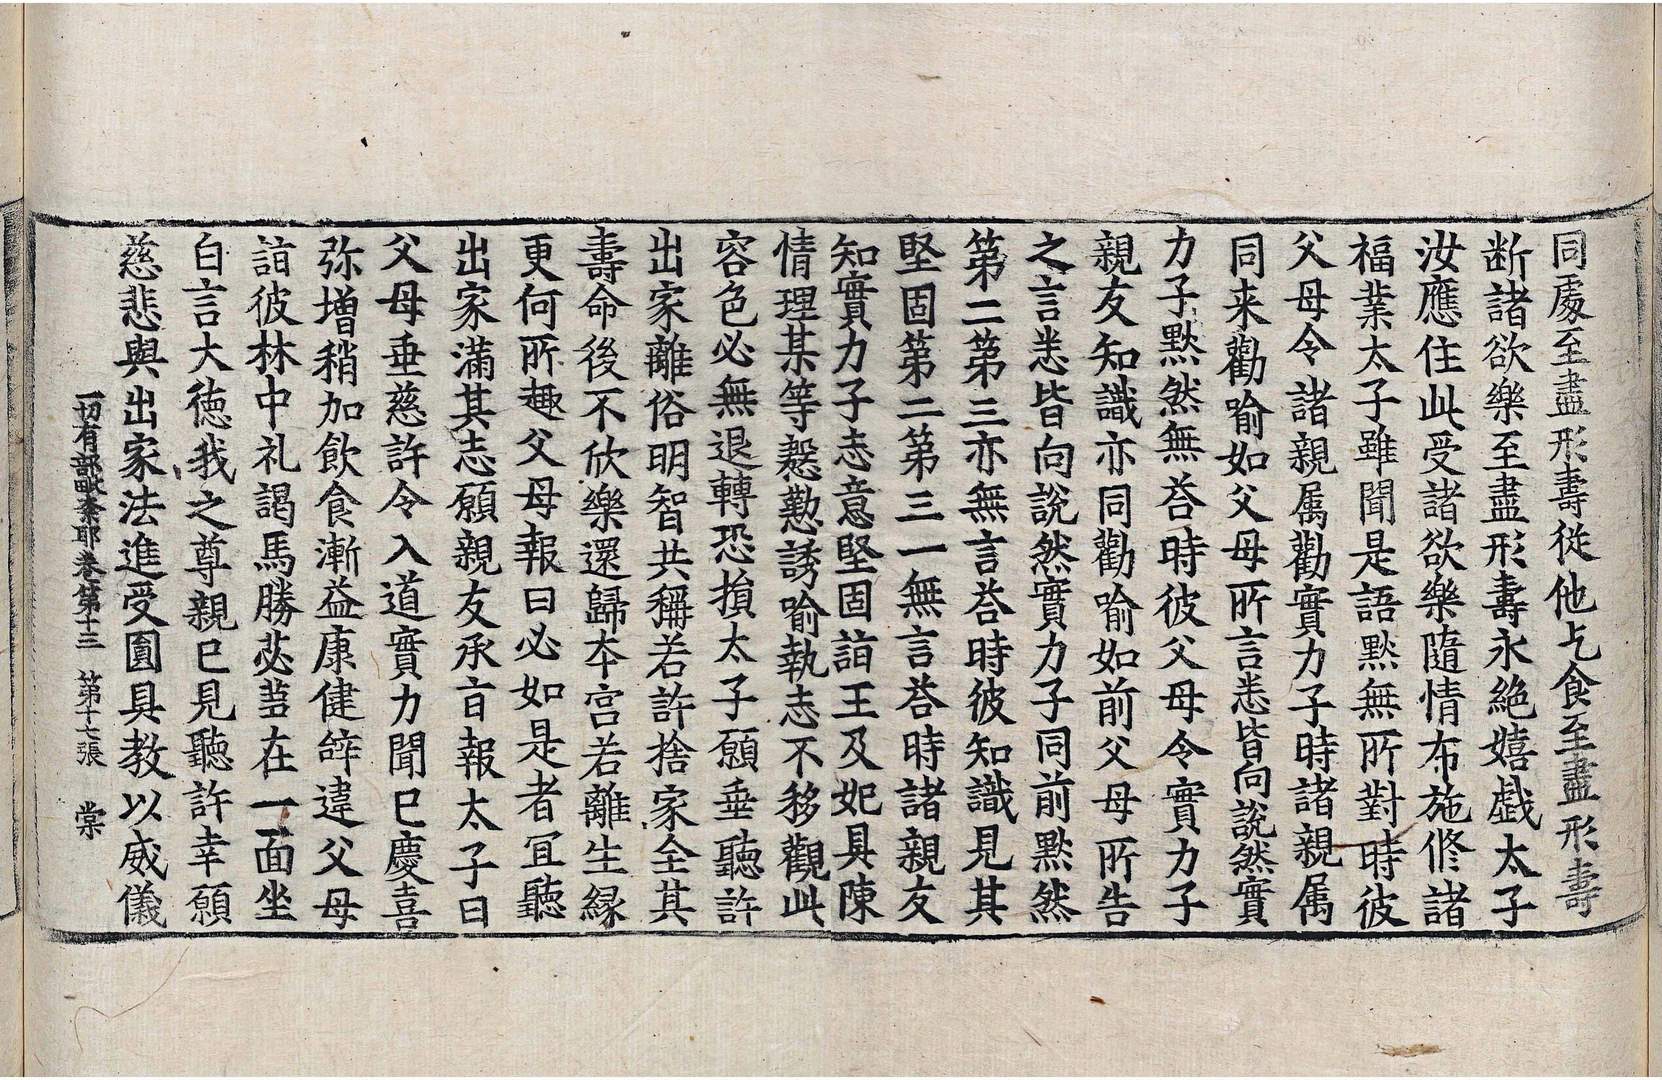 同處至盡形壽從他乞食至盡形壽
断諸欲樂至盡形壽永絶嬉戲太子
汝應住此受諸欲樂隨情布施修諸
福業太子雖聞是語黙無所對時彼
父母令諸親属勸實力子時諸親属
同来勸喻如父母所言悉皆向說然實
力子黙然無荅時彼父母令實力子
親友知識亦同勸喻如前父母所告
之言悉皆向說然實力子同前黙然
第二第三亦無言荅時彼知識見其
堅固第二第三一無言荅時諸親友
知實力子志意堅固詣王及妃具陳
情理某等慇懃誘喻執志不移觀此
容色必無退轉恐損太子願垂聽許
出家離俗明智共稱若許捨家全其
壽命後不欣樂還歸本宮若離生縁
更何所趣父母報曰必如是者冝聽
出家滿其志願親友承旨報太子曰
父母垂慈許令入道實力聞已慶喜
弥增稍加飲食漸益康健辝違父母
詣彼林中礼謁馬勝苾蒭在一面坐
白言大徳我之尊親已見聽許幸願
慈悲與出家法進受圓具教以威儀
一切有部毗奈耶卷第十三 第十七張 棠